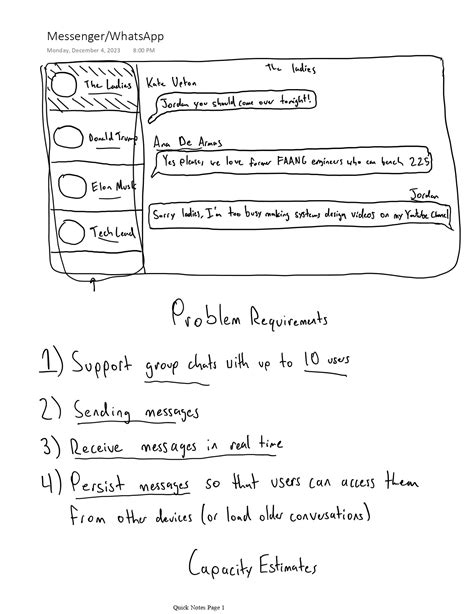 Messenger/WhatsApp
Monday, December 4, 2023 8:00 PM
The Ladies
Donald Trump
Elon Musk
Tech Lead
The ladies
Kate Upton
Jordan you should come over tonight!
Ana De Armas
Yes please, we love former FAANG engineers who can bench 225
Jordan
Sorry ladies, I'm too busy making systems design videos on my Youtube Channel
Problem Requirements
1) Support group chats with up to 10 users
2) Sending messages
3) Receive messages in real time
4) Persist messages so that users can access them
from other devices (or load older conversations)
Capacity Estimates
Quick Notes Page 1